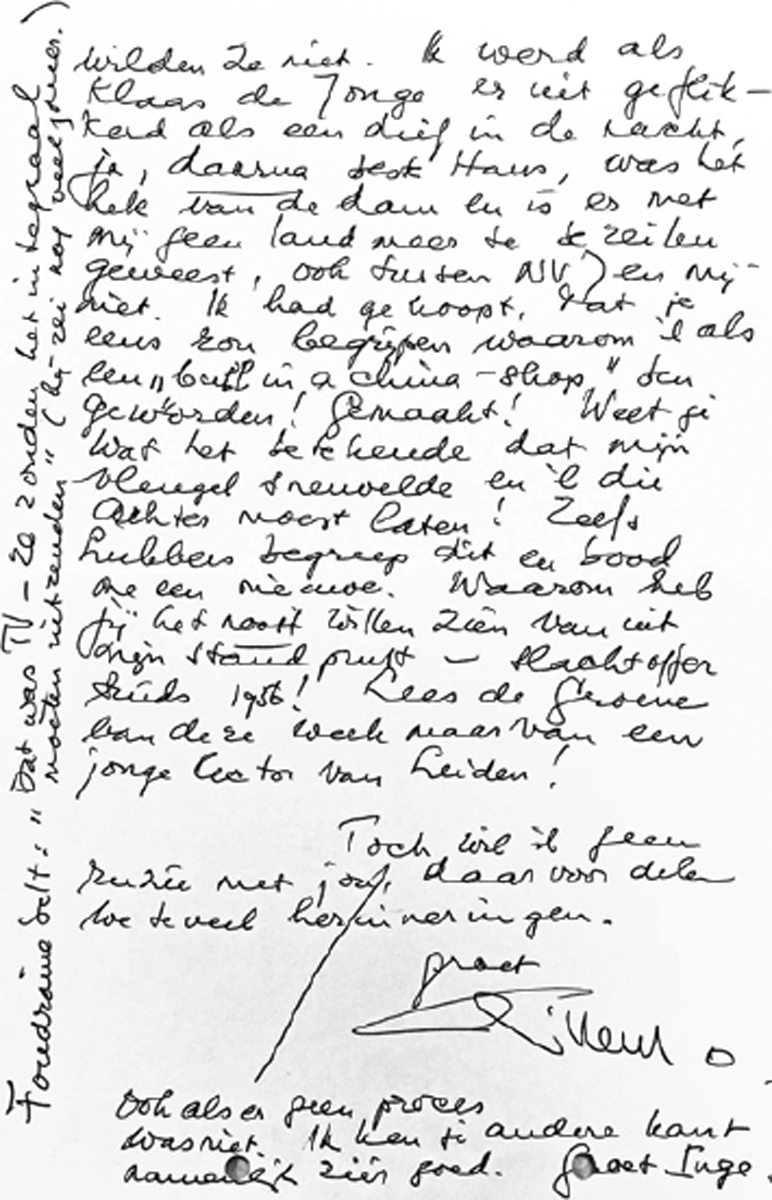 wilden ze niet. Ik werd als
Klaas de Jonge er uit geflik-
kerd als een dief in de nacht,
ja, daarna best Hans, was het
hek van de dam en is er met
mij geen land meer te bezeilen
geweest, ook tussen NV) en mij
niet. Ik had gehoopt, dat je
eens zou begrijpen waarom 'k als
een "bull in a china-shop" ben
geworden! Gemaakt! Weet je
wat het betekende dat mijn
vleugel sneuvelde en 'k die
achter moest laten! Zelfs
Lubbers begreep dit en bood
me een nieuwe. Waarom heb
jij het nooit willen zien van uit
mijn standpunt — slachtoffer
sinds 1956! Lees de Groene
van deze week maar van een
jonge lector van Leiden!
Toch wil ik geen
ruzie met jou, daarvoor delen
we teveel herinneringen.
groet
Willem
Ook als er geen proces
was niet. Ik ken je andere kant
namelijk zéér goed. Groet Inge.
Foudraine belt: "Dat was TV - ze zonden het integraal
moeten uitzenden" (hij zei nog veel meer.)